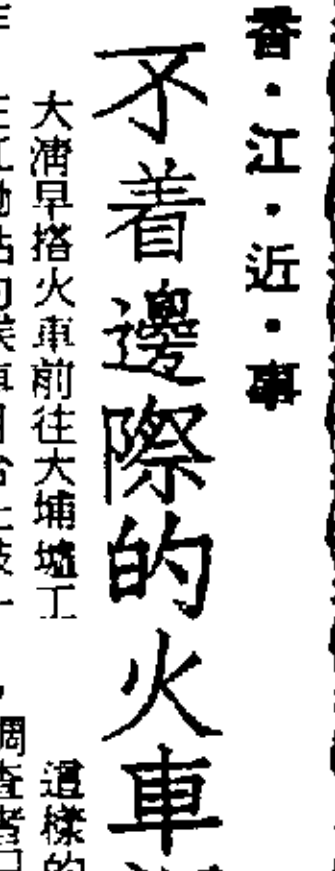 香·江·近·事
不着邊際的火車
大清早搭火車前往大埔墟工
這樣的
調查者